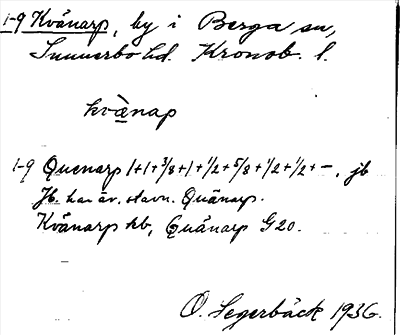 1-9 Kvänarp, by i Berga sn,
Sunnerbo hd. Kronob. l.
kvænap
1-9 Quenarp 1+1+3/8+1+1/2+5/8+1/2+1/2+—, jb
Jb. har äv. stavn. Quänarp.
Kvänarp kb, Quänarp G20.
O. Segerbäck 1936.